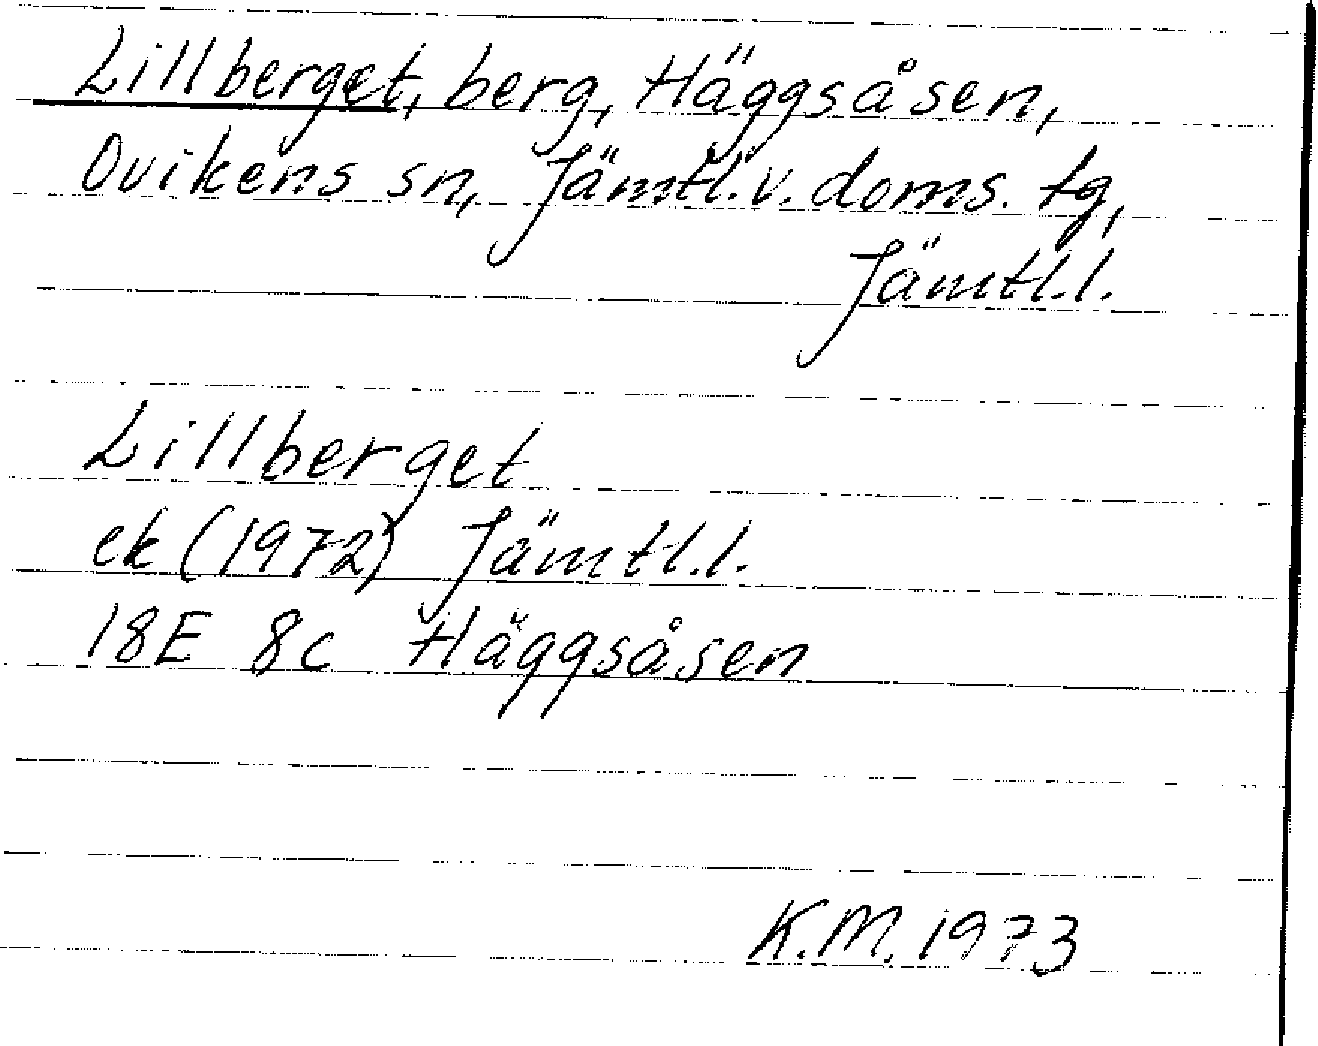 Lillberget, berg, Häggsåsen,
Ovikens sn, Jämtl.v. doms. tg,
Jämtl.l.
Lillberget
ek (1972) Jämtl.l.
18E 8c Häggsåsen
K.M. 1973